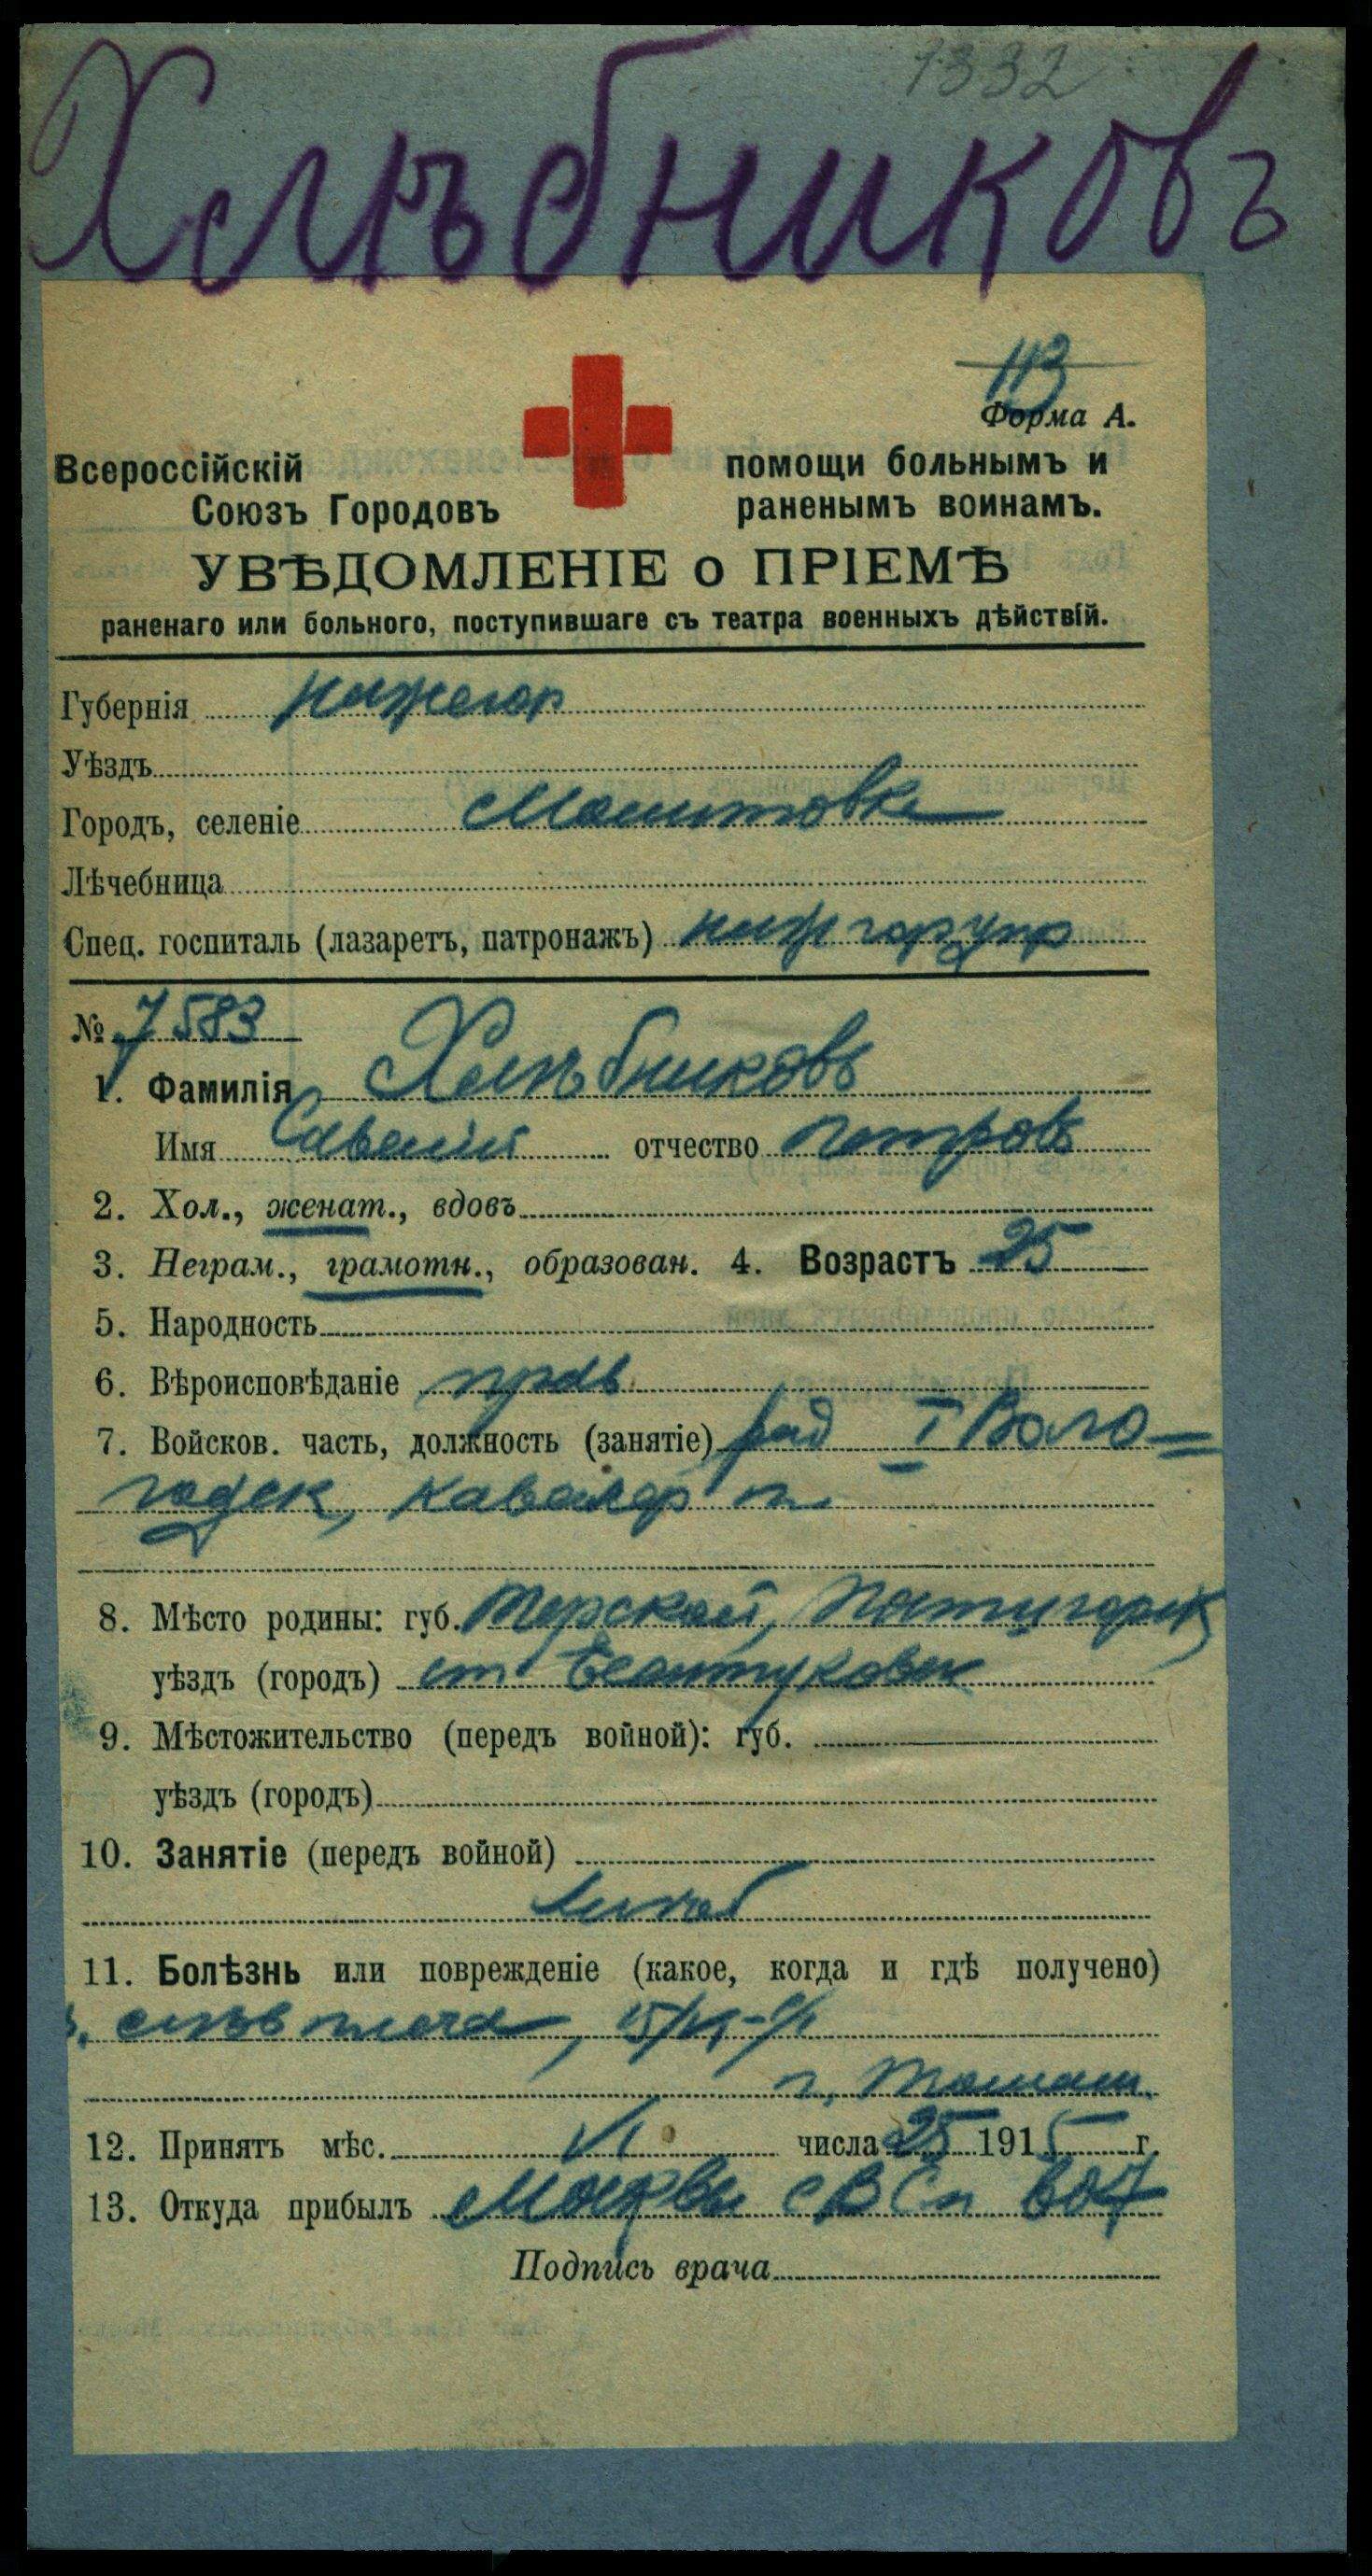 1332
Хлѣбниковъ
113
Форма А.
Всероссійскій
Союзъ Городовъ
помощи больнымъ и
раненымъ воинамъ.
УВѢДОМЛЕНІЕ о ПРІЕМѢ
раненаго или больного, поступившаго съ театра военныхъ дѣйствій.
Губернія Нижегор
Уѣздъ
Городъ, селеніе
Лѣчебница
Спец. госпиталь (лазаретъ, патронажъ) ниж гор упр
№ 7583
1. Фамилія Хлѣбниковъ
Имя Савелій отчество Петровъ
2. Хол., женат., вдовъ
3. Неграм., грамотн., образован. 4. Возрастъ 25
5. Народность
6. Вѣроисповѣданіе прав
7. Войсков. часть, должность (занятіе) ряд I Воло-
годск, кавалер п.
8. Мѣсто родины: губ. Терской, Пятигорск
уѣздъ (городъ) ст.
9. Мѣстожительство (передъ войной): губ.
уѣздъ (городъ)
10. Занятіе (передъ войной)
11. Болѣзнь или поврежденіе (какое, когда и гдѣ получено)
плеча, 15/VI
г. Томаш.
12. Принятъ мѣс. VI числа 25 1915 г.
13. Откуда прибылъ Москвы
Подпись врача